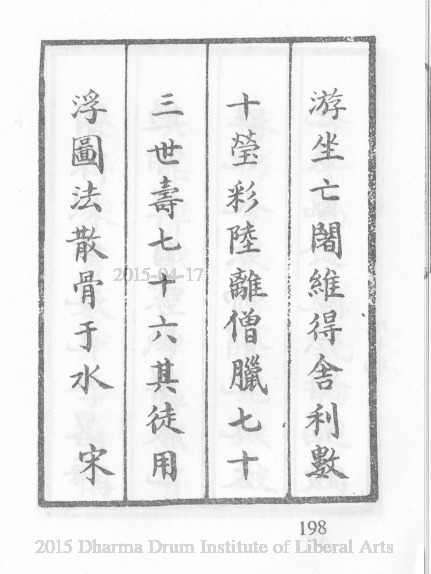 游坐亡闍維得舍利數
十瑩彩陸離僧臘七十
三世壽七十六其徒用
浮圖法散骨于水 宋
198
2015-04-17
2015 Dharma Drum Institute of Liberal Arts